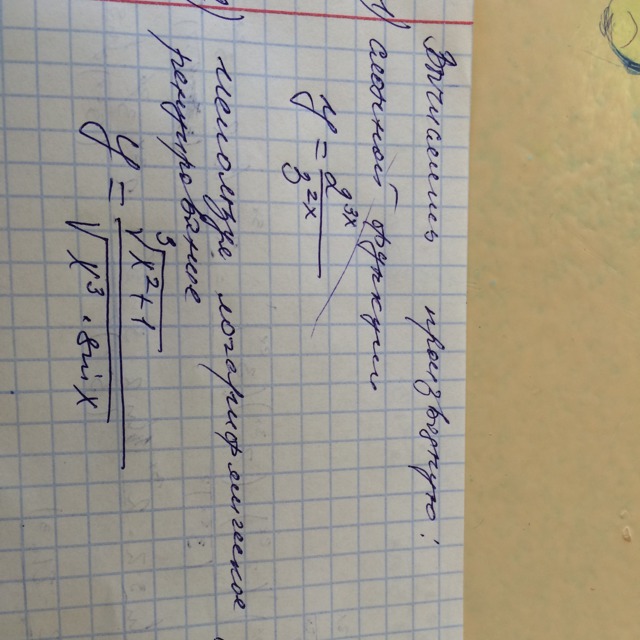 Вычислить производную:
1) сложной функции
y = 2^{3x} / 3^{2x}
2) используя логарифмическое
ренцирование
y = ∛(x²+1) / √(x³·sin x)